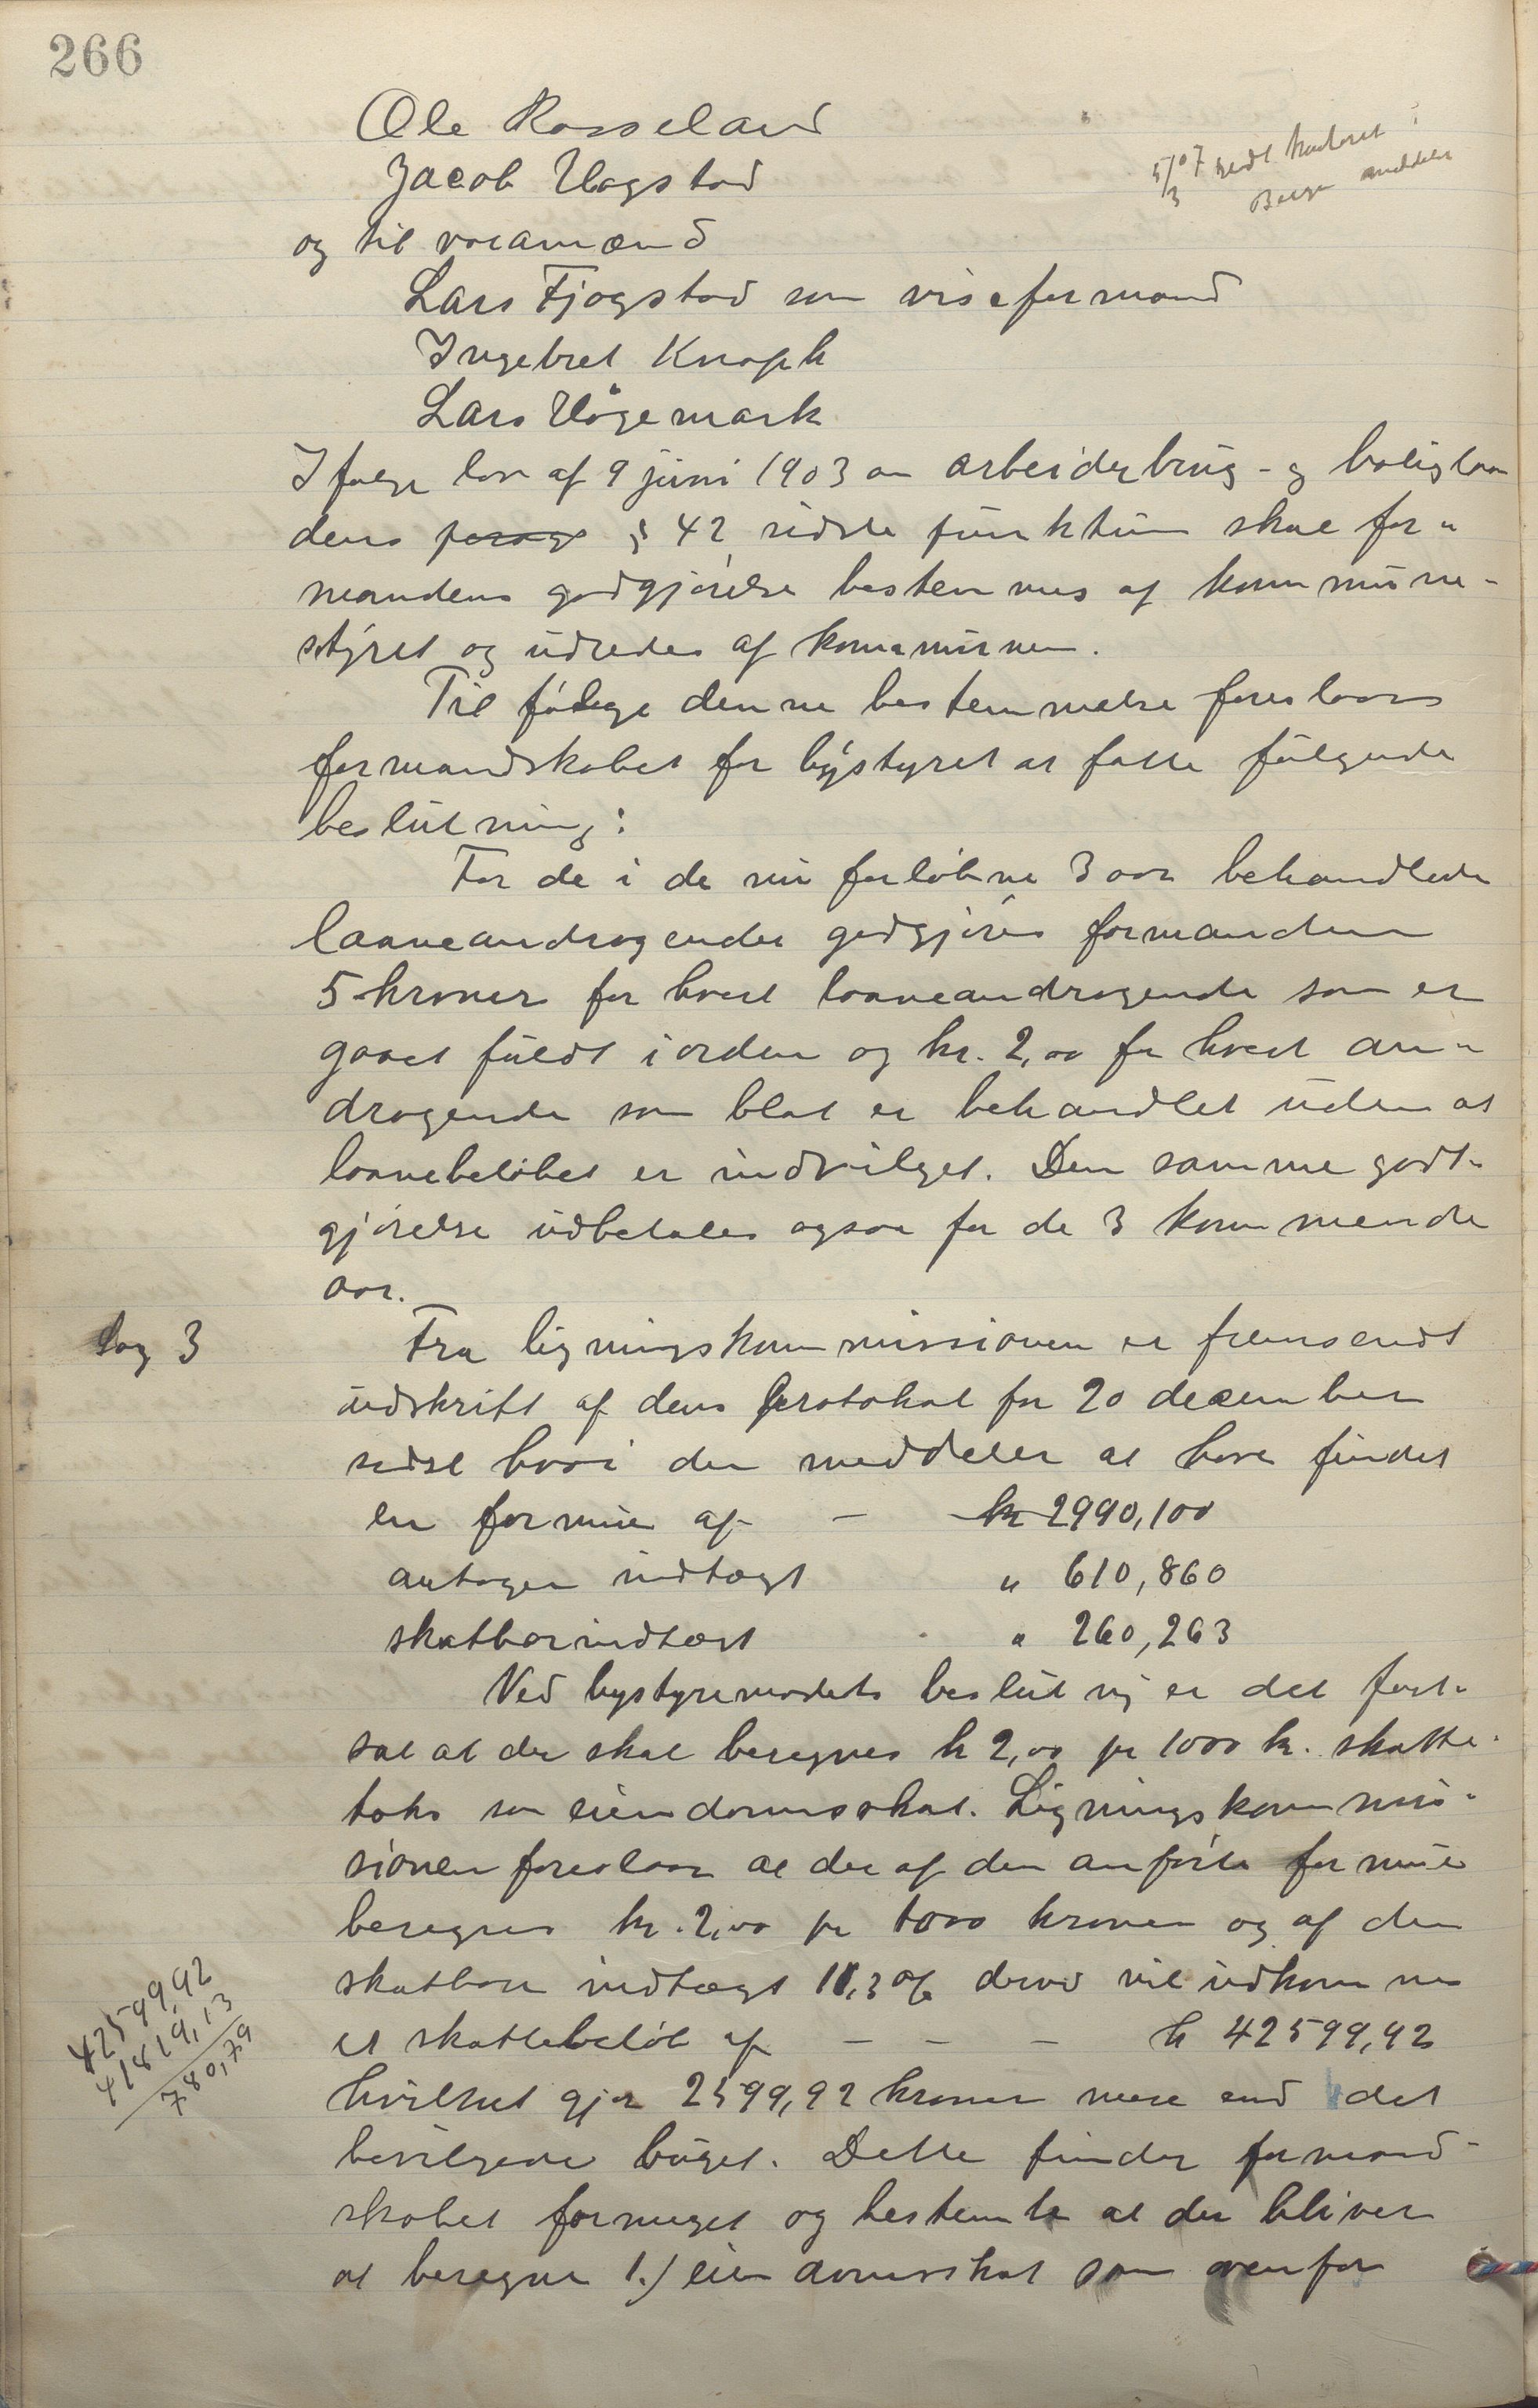 266
Ole Rosseland
Jacob Hagstad
og til varamænd
Lars Fjogstad som viseformand
Ingebret Knoph
Lars Hógemark
5/3 07
I følge lov af 9 juni 1903 om arbeiderbrug- og boliglaan
dens parag § 42 sidste punktum skal for-
mandens godgjórelse bestemmes af kommune-
styret og udredes af kommunen.
Til følge denne bestemmelse foreslaar
formandskabet for bystyret at fatte følgende
beslutning:
For de i de nu forløbne 3 aar behandlede
laaneandragender godgjøres formanden
5 kroner for hvert laaneandragende som er
gaaet fuldt iorden og kr. 2,00 for hvert an-
dragende som blot er behandlet uden at
laanebeløbet er indvilget. Den samme godt-
gjørelse udbetales ogsaa for de 3 kommende
aar.
Sag 3
Fra ligningskommissionen er fremsendt
udskrift af dens protokol for 20 december
sidst hvori den meddeler at have fundet
en formue af - kr 2990,100
antagen indtægt " 610,860
skatbar indtægt " 260,263
Ved bystyremødets beslutning er det fast-
sat at der skal beregnes kr 2,00 pr 1000 kr. skatte-
takst som eiendomsskat. Ligningskommis-
sionen foreslaar at der af den anførte formue
beregnes kr. 2,00 pr 1000 kroner og af den
skatbare indtægt 11,3 % derved vil udkomme
et skattebeløb af - - - kr 42599,92
42599,92
41819,13
780,79
hvilket gjør 2599,92 kroner mere end det
bevilgede buget. Dette finder formand-
skabet formeget og bestemte at der bliver
at beregne 1.) eiendomsskat som ovenfor